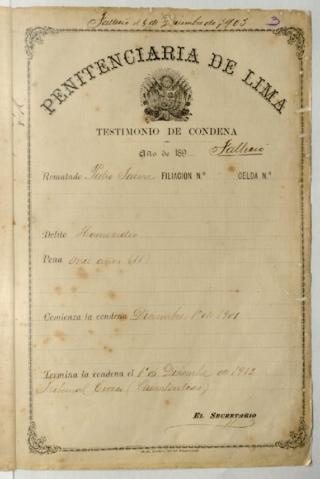 Falleció el 8 de Diciembre de 1903
3
PENITENCIARIA DE LIMA
TESTIMONIO DE CONDENA
Año de 189
Falleció
Rematado Pedro FILIACION N.º CELDA N.º
Delito Homicidio
Pena once años (11)
Comienza la condena Diciembre 1º de 1901
Termina la condena el 1º de Diciembre de 1912
Tribunal
EL SECRETARIO